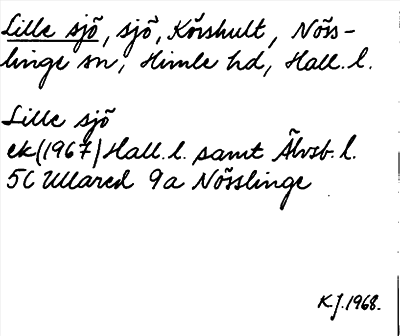 Lille sjö, sjö, Körshult, Nöss-
linge sn, Himle hd, Hall. l.
Lille sjö
ek (1967) Hall. l. samt Älvsb. l.
5C Ullared 9a Nösslinge
K.J. 1968.